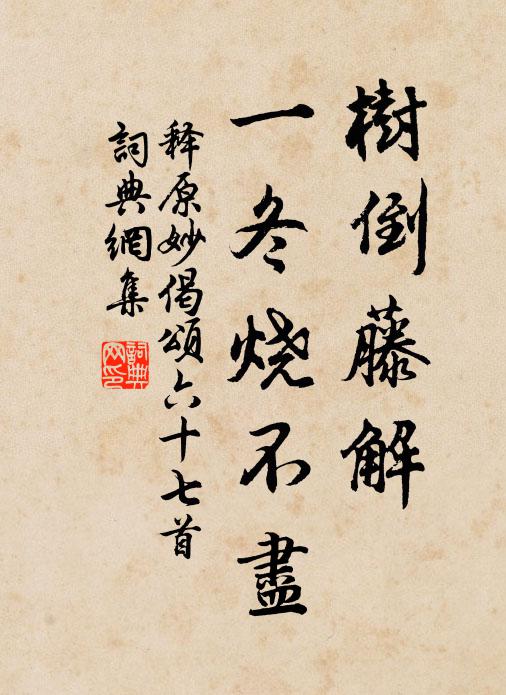 樹倒藤解
一冬烧不盡
释原妙偈頌六十七首
詞典網集
詞典网印